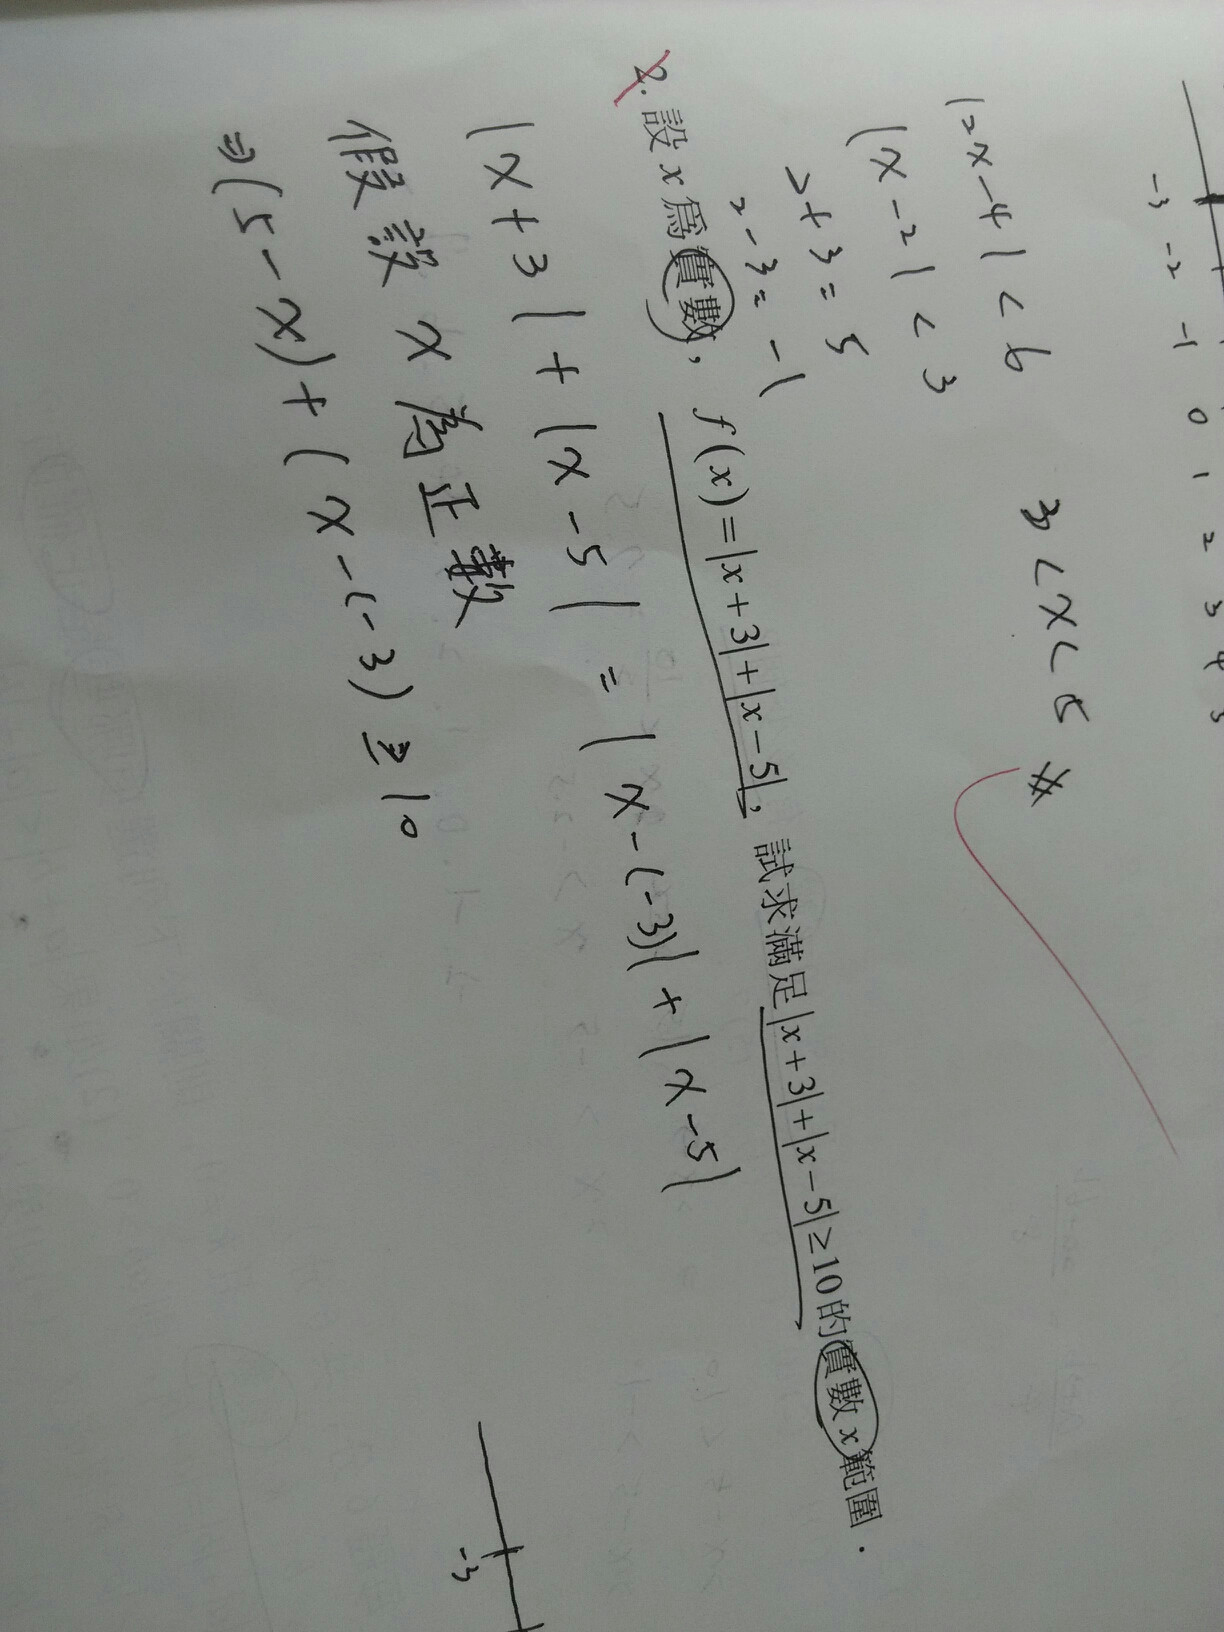 -3 -2 -1 0 1 2 3 4 5
|2x-4| < 6
3 < x < 5 #
|x-2| < 3
2+3=5
2-3=-1
2. 設x為實數，f(x)=|x+3|+|x-5|，試求滿足|x+3|+|x-5|≥10的實數x範圍．
|x+3|+|x-5| = |x-(-3)|+|x-5|
假設 x 為正數
⇒(5-x)+(x-(-3) ≥ 10
-3